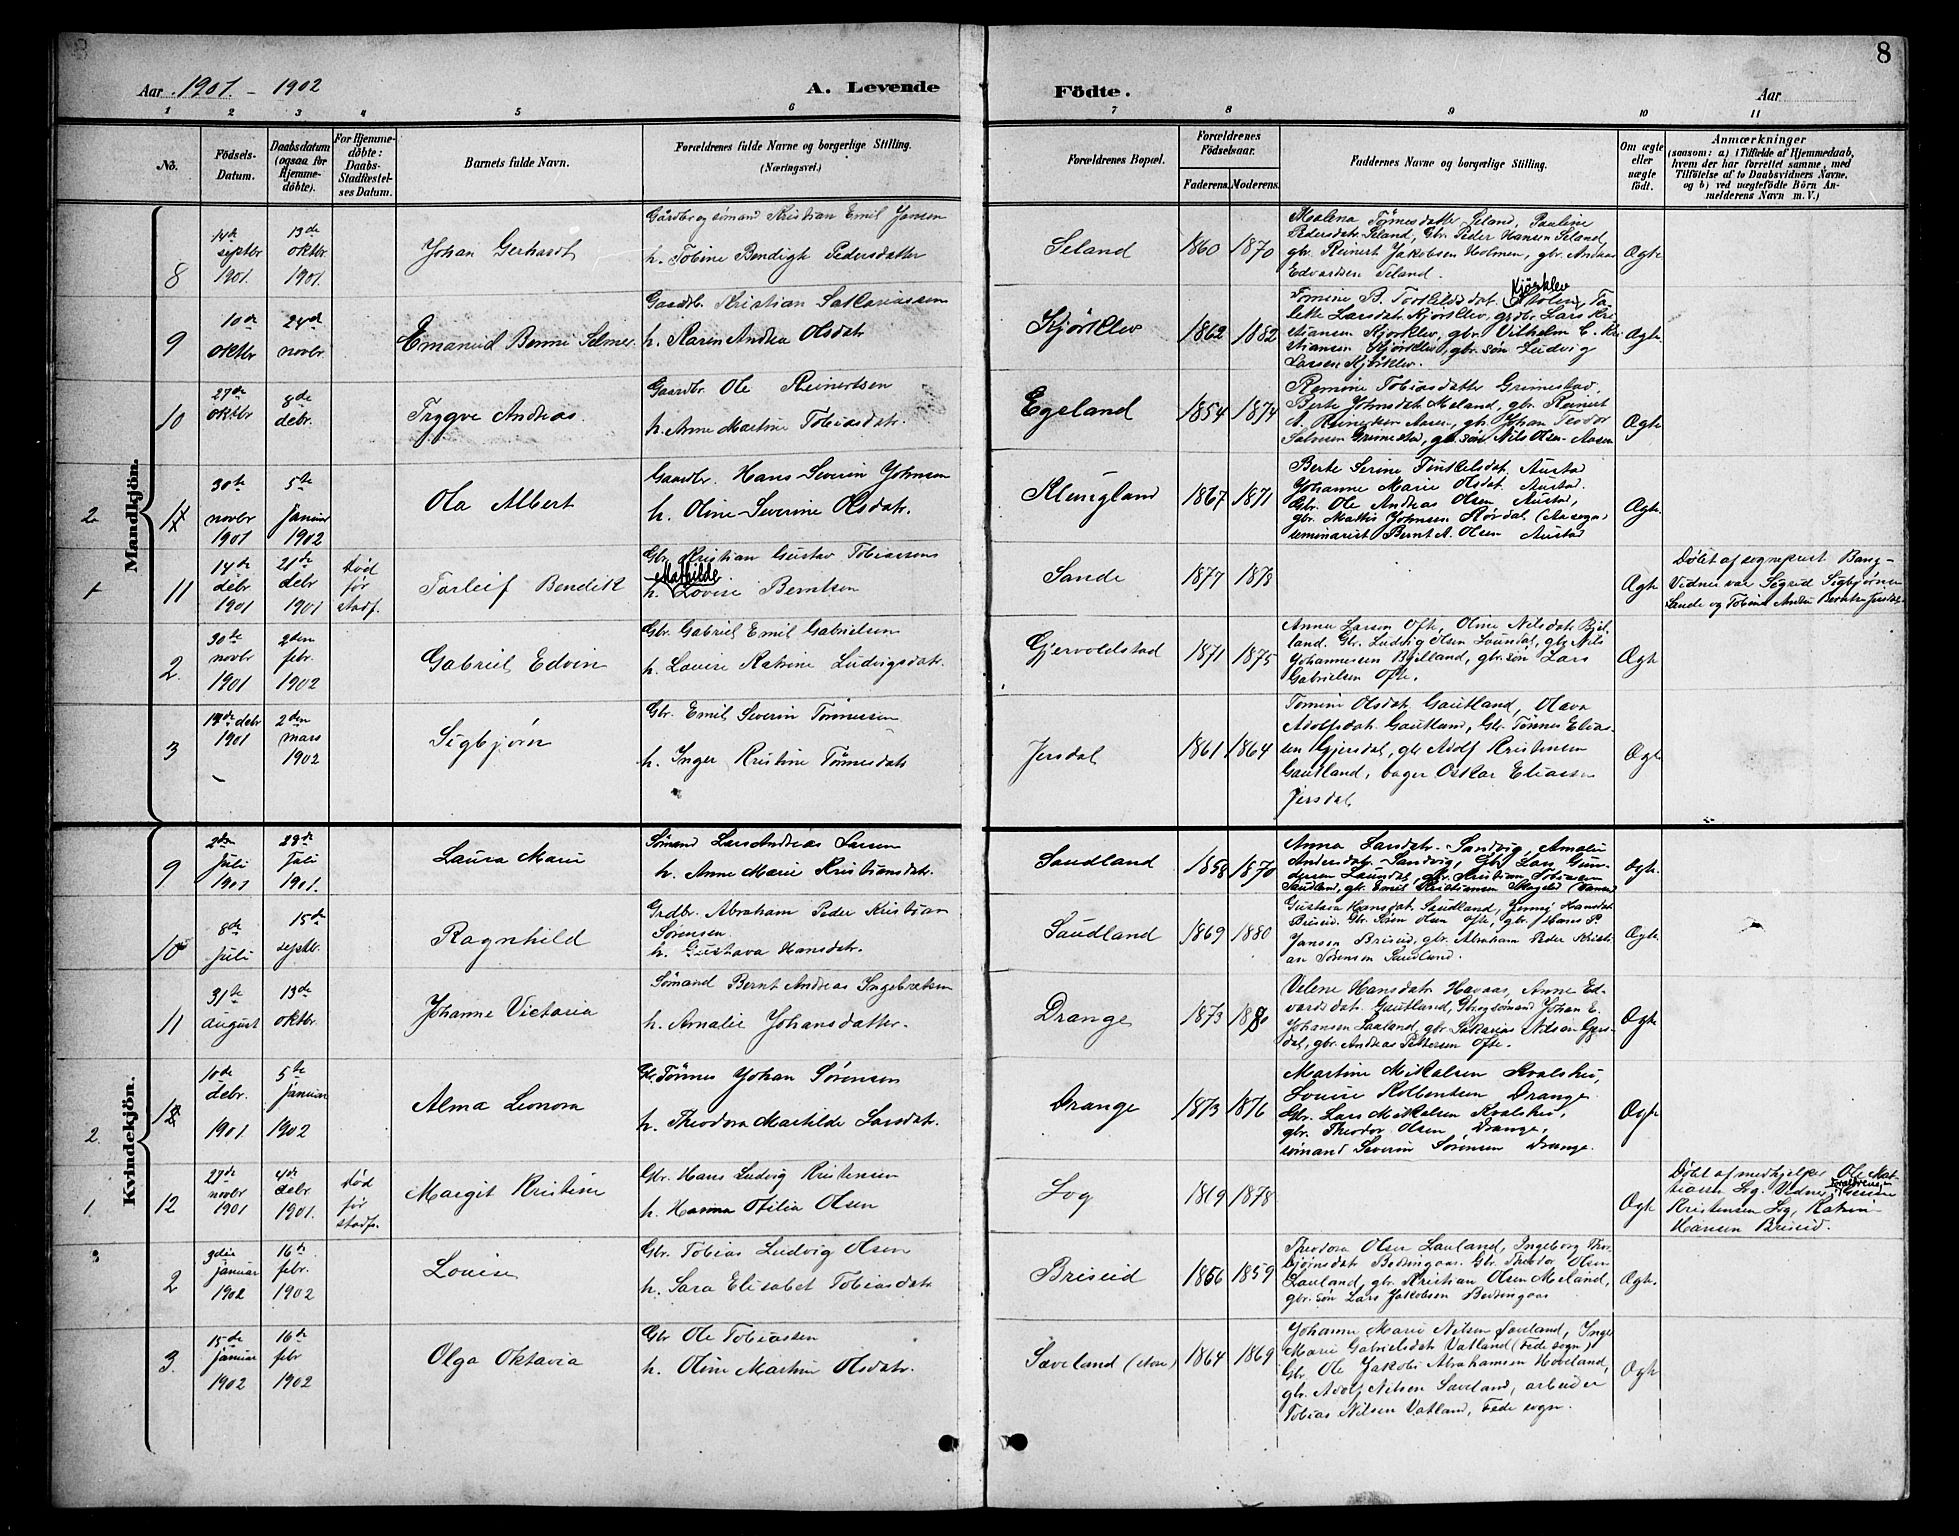 8
Aar 1901 - 1902
A. Levende Födte.
Aar
1 2 3 4 5 6 7 8 9 10 11
Nö.
Födsels-Datum.
Daabsdatum (ogsaa for Hjemme-döbte).
For Hjemme-döbte: Daabs-Stadfæstel-ses Datum.
Barnets fulde Navn.
Forældrenes fulde Navne og borgerlige Stilling. (Næringsvei.)
Forældrenes Bopæl.
Forældrenes Födselsaar.
Faderens. Moderens.
Faddernes Navne og borgerlige Stilling.
Om ægte eller uægte födt.
Anmærkninger
(saasom: a) i Tilfælde af Hjemmedaab, hvem der har forrettet samme, med Tilföielse af to Daabsvidners Navne. og b) ved uægtefödte Börn An-melderens Navn m. V.)
Mandkjön.
8
14de septbr 1901
13de oktbr 1901
Johan Gerhardt
Gaardbr og sømand Kristian Emil Jansen
h. Tobine Bendigte Pedersdatter
Seland
1860 1870
Malena Tönnesdatter Seland, Pauline
Pedersdatr Seland, Gbr. Peder Hansen Seland,
gbr. Reinert Jakobsen Holmen, gbr. Andreas
Edvardsen Seland.
Ægte
9
10de oktbr
24de novbr
Emanuel Bernni Selmer.
Gaardbr. Kristian Sakariassen
h. Karen Andrea Olsdatr
Kjørklev
1862 1882
Kjörklev
Tomine B. Torkelsdatr.
lette Larsdatr. Kjørklev, gbr. Lars Kri
stiansen Kjørklev, gbr. Vilhelm E. Kri
stiansen Kjørklev, gbr. søn Ludvig
Larsen Kjørklev.
Ægte
10
27de oktbr
8de debr.
Trygve Andreas.
Gaardbr. Ole Reinertsen
h. Anne Martine Tobiasdatr.
Egeland
1854 1874
Romine Tobiasdatter Grimestad,
Berte Johnsdatr. Meland, gbr. Reinert
A. Reinertsen Aasen, gbr. Johan Teodor
Salvesen Grimestad, gbr. søn Nils Olsen Aasen
Ægte
2
1
30te novbr 1901
5te januar 1902
Ola Albert
Gaardbr. Hans Severin Johnsen
h. Oline Severine Olsdatr.
Klungland
1867 1871
Berte Serine Torkelsdat. Austad
Johanne Marie Olsdat. Austad.
Gbr. Ole Andreas Olsen Austad,
gbr. Mattis Johnsen Rørdal (Aasogn)
seminarist Bernt A. Olsen Austad
Ægte.
1
11
14de debr 1901
21de debr 1901
död før stadf.
Torleif Bendik
Gbr. Kristian Gustav Tobiassens
Mathilde
h. Lovise Berntsen
Sande
1877 1878
Ægte
Döbt af sogneprest Bang-
Vidner var Sigrid Sigbjørnsen
Sande og Tobine Andrea Berntsen Jersdal
2.
30te novbr 1901
2den febr. 1902
Gabriel Edvin
Gbr. Gabriel Emil Gabrielsen
h. Lovise Katrine Ludvigsdatr.
Gjervoldstad
1871 1875
Anna Larsen Ofte, Oline Nilsdatr. Bjel
land. Gbr. Ludvig Olsen Laundal, gbr. Nils
Johannessen Bjelland, gbr. søn Lars
Gabrielsen Ofte.
Ægte
3
debr 1901
2den mars 1902
Sigbjørn
Gbr. Emil Severin Tönnessen
h. Inger Kristine Tönnesdatr
Jersdal
1861 1864
Tomine Olsdat. Gautland, Olava
Adolfsdatr. Gautland, Gbr. Tønnes Elias-
sen Gjersdal, gbr Adolf Kristensen
Gautland, bager Oskar Eliassen
Jersdal
Ægte
Kvindekjön.
9
2den juli 1901
28de juli 1901.
Laura Marie
Sømand Lars Andreas Larsen
h. Anne Marie Kristiansdatr.
Saudland
1858 1870
Anna Larsdatr. Sandvig, Amalie
Andersdatr. Sandvig, Gbr. Lars Gun-
dersen Laundal, gbr. Kristian Tobiassen
Saudland, gbr. Emil Kristiansen
Ægte.
10
8de juli
15de septbr.
Ragnhild
Grdbr. Abraham Peder Kristian
Sørensen.
h. Gustava Hansdatr.
Saudland
1869 1880
Gustava Hansdatr. Saudland, Jenny Hansdat.
Briseid. Gbr. Søren Olsen Ofte, gbr. Hans P.
Jansen Briseid, gbr. Abraham Peder Kristi-
an Sørensen Saudland.
Ægte.
11
31te august
13de oktbr.
Johanne Victoria
Sømand Bernt Andreas Ingebretsen
h. Amalie Johansdatter.
Drange
1873 1880
Velene Hansdatr. Havaas, Anne Ed-
vardsdat. Gautland, Gbr og sømand Johan E.
Johansen Lauland, gbr. Sakarias Nilsen Gjers-
dal, gbr. Andreas Pettersen Ofte.
Ægte
2.
1
10de debr. 1901
5te januar 1902
Alma Leonora
Gbr. Tönnes Johan Sørensen
h. Theodora Martilde Larsdatr.
Drange
1873 1876
Martine Mikalsen Kvalskei,
Louise Kolbentsen Drange.
Gbr. Lars Mikalsen Kvalskei,
gbr. Theodor Olsen Drange,
sømand Severin Sørensen Drange.
Ægte
1
12
27de novbr 1901
4de debr 1901.
död før stadf.
Margit Kristine
Gbr. Hans Ludvig Kristensen
h. Hanna Otilia Olsen
Log
1819 1878
Ægte
Döbt af medhjelper Ole Mat-
tiassen Log. Vidner:
Kristensen Log, Katrine
Hansen Briseid.
3
2
januar 1902
16de febr. 1902
Louise
Gbr. Tobias Ludvig Olsen
h. Sara Elisabet Tobiasdatr
Briseid
1856 1859
Theodora Olsen Lauland, Ingeborg Thor-
bjørnsdatr Bottingaas. Gbr. Theodor Olsen
Lauland, gbr. Kristian Olsen Meland,
gbr. søn Lars Jakobsen Bottingaas
Ægte.
3.
15de januar 1902
16de febr 1902
Olga Oktavia
Gbr Ole Tobiassen
h. Oline Martine Olsdatr.
Saveland (Moe)
1864 1869
Johanne Marie Nilsen Saveland, Inger
Marie Gabrielsdatr Vatland (Fede sogn)
Gbr. Ole Jakobi Abrahamsen Hoveland,
gbr. Adolf Nilsen Saveland, arbeider
Tobias Nilsen Vatland, Fede sogn.
Ægte